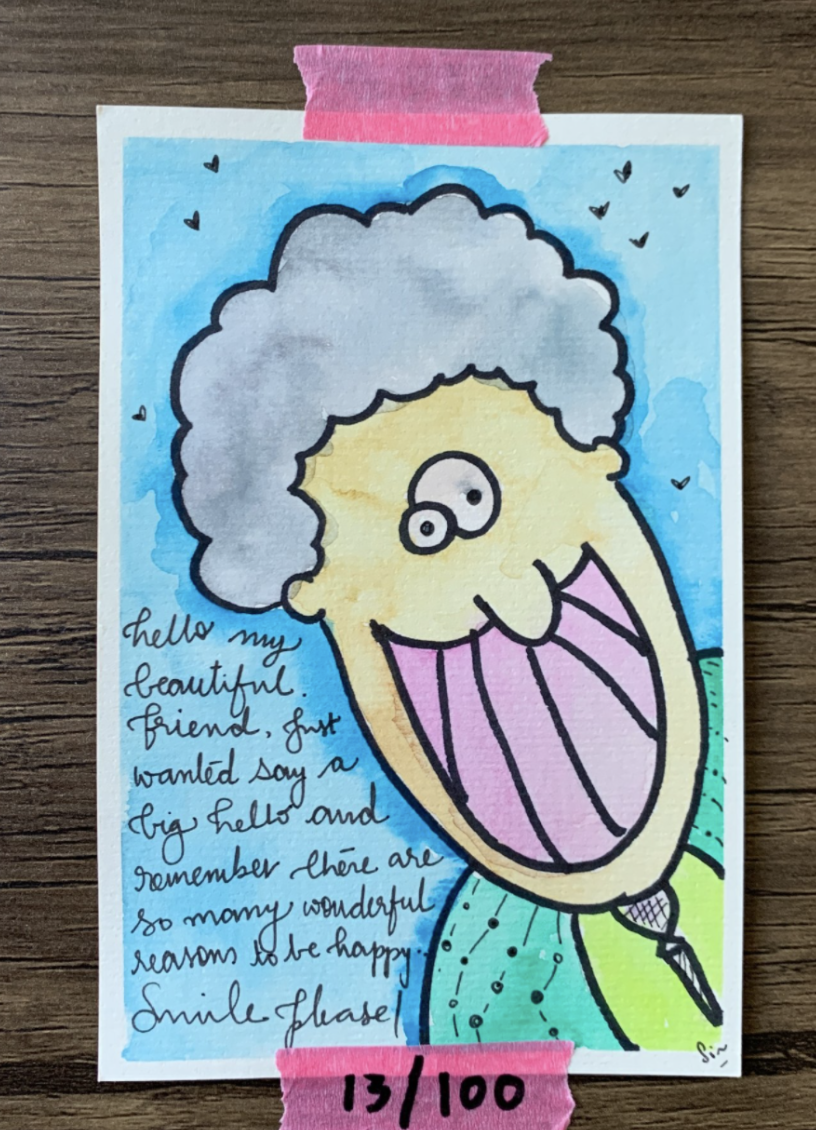 hello my
beautiful.
friend, just
wanted say a
big hello and
remember there are
so many wonderful
reasons to be happy.
Smile please!
Sin
13/100